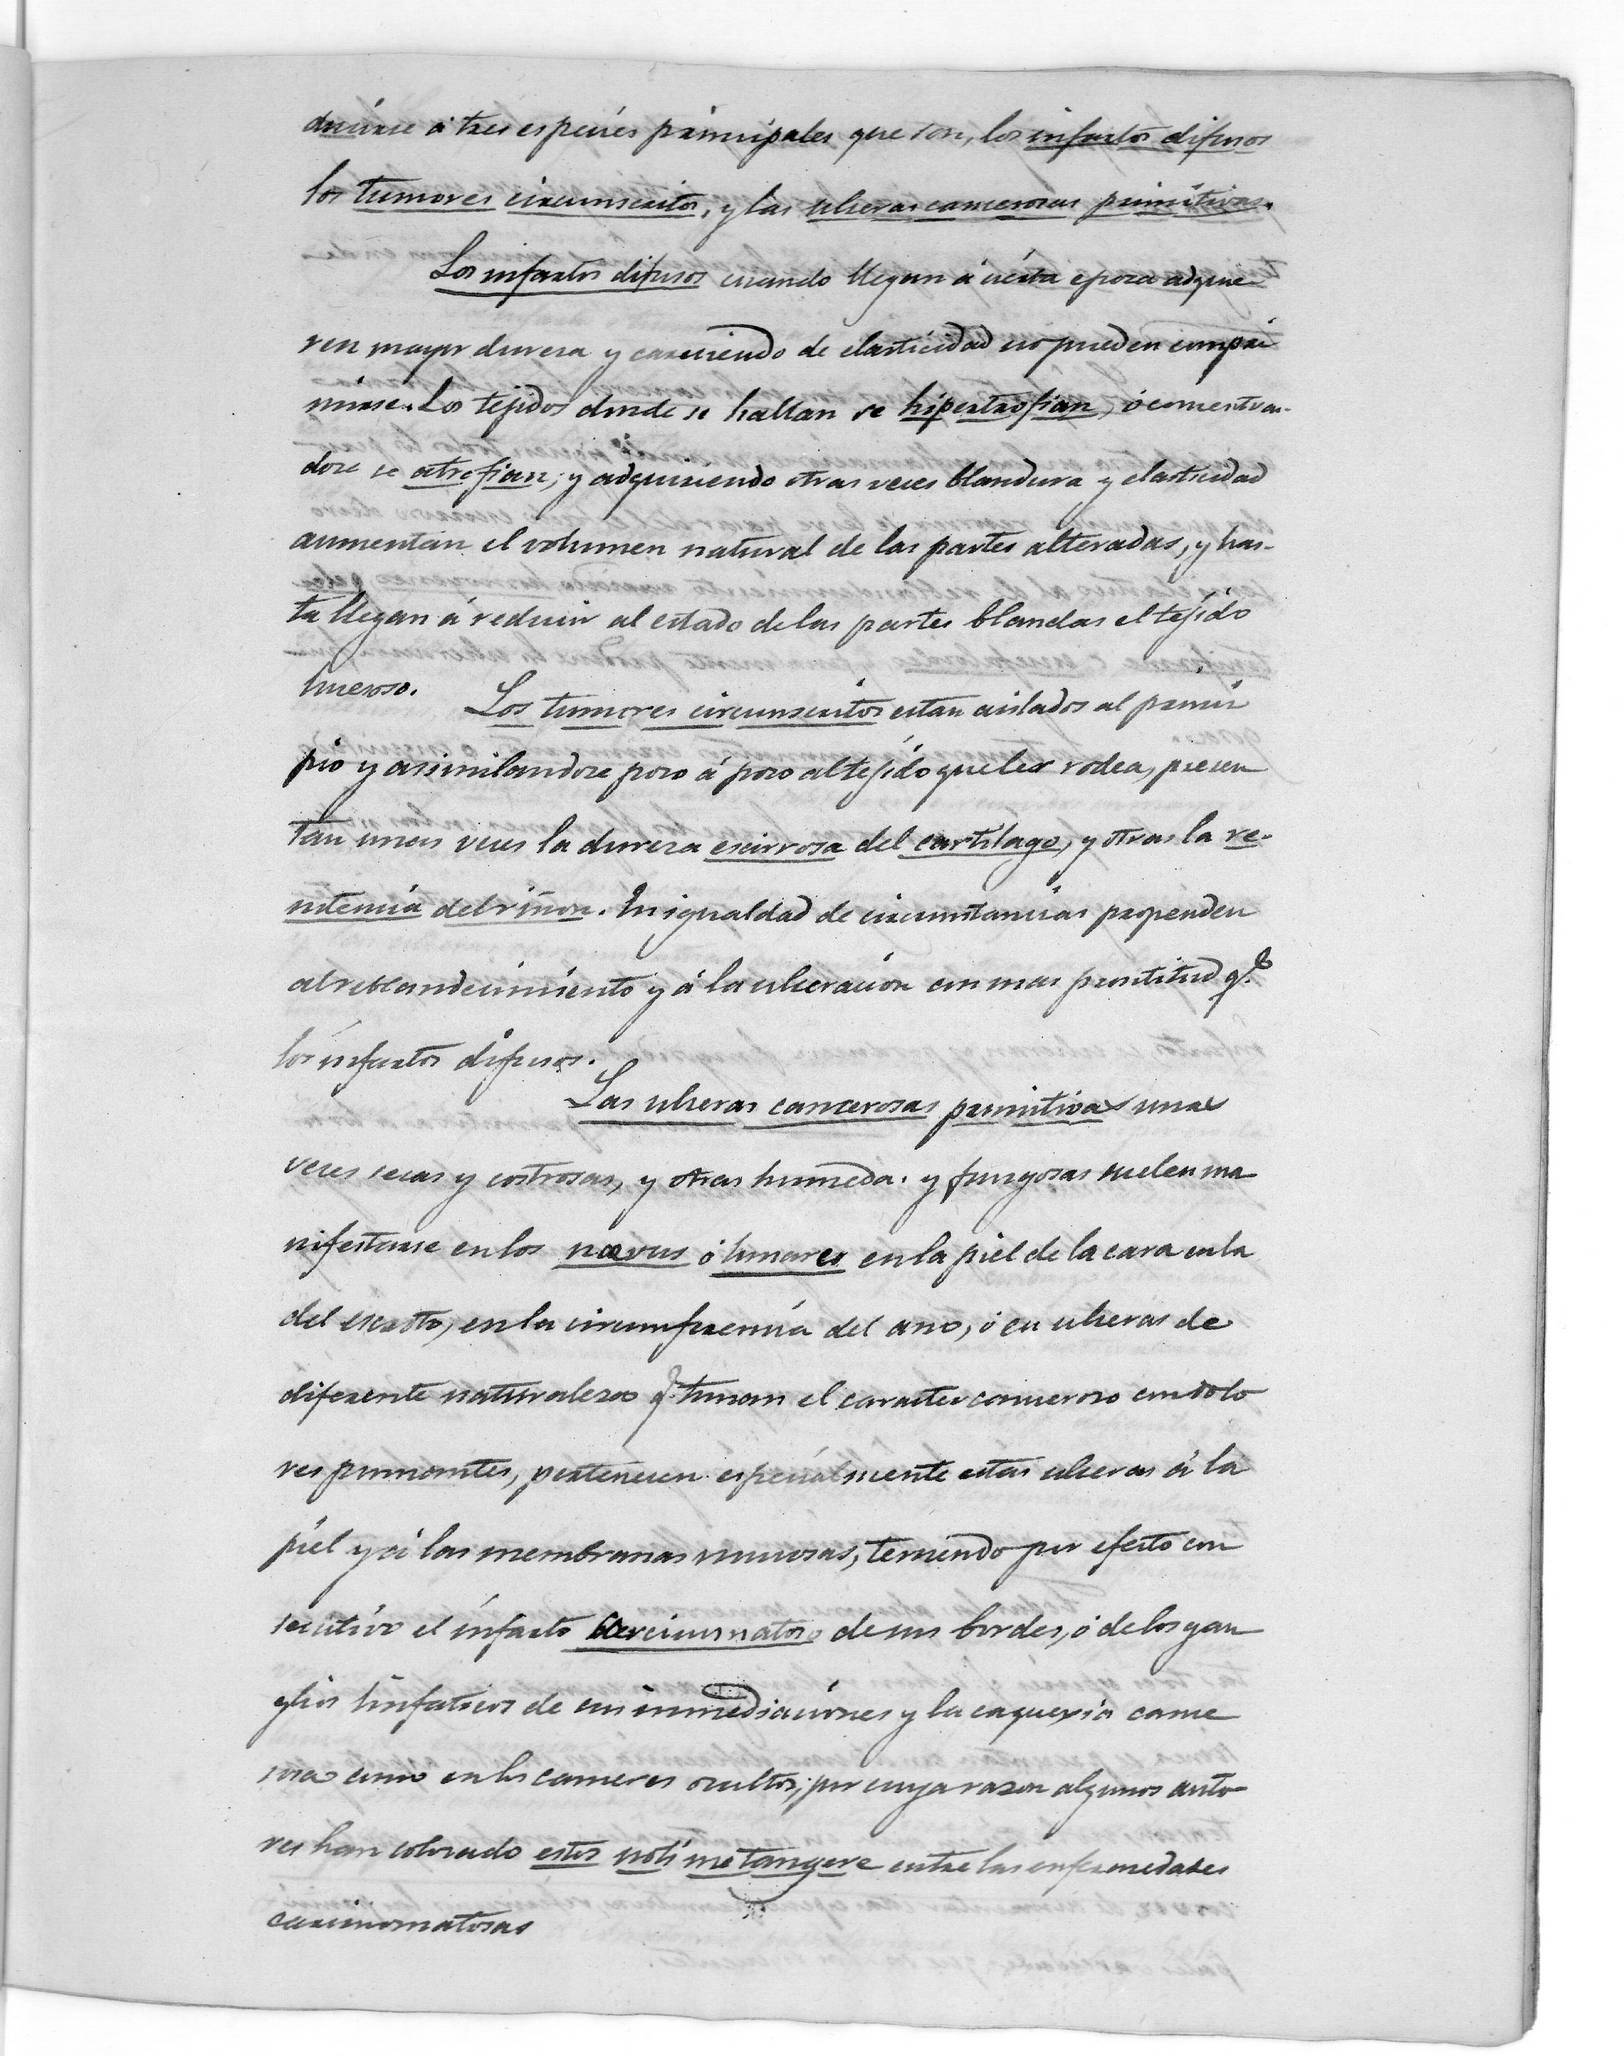 ducirse á tres especies principales que son, los infartos difusos
los tumores circunscritos, y las ulceras cancerosas primitivas.
Los infartos difusos cuando llegan á cierta epoca adquie-
ren mayor dureza y careciendo de elasticidad no pueden compri
mirse. Los tejidos donde se hallan se hipertrofian, ó concentran-
dose se atrofian; y adquiriendo otras veces blandura y elasticidad
aumentan el volumen natural de las partes alteradas, y has-
ta llegan á reducir al estado de las partes blandas el tejido
hueroso.
Los tumores circunscritos estan aislados al princi
pio y assimilandose poco á poco al tejido que les rodea, presen
tan unas veces la dureza escirrosa del cartilago, y otras la re-
nitencia del riñon. En igualdad de circunstancias propenden
al reblandecimiento y á la ulceracion con mas prontitud q.e
los infartos difusos.
Las ulceras cancerosas primitivas unas
veces secas y costrosas, y otras humedas y fungosas suelen ma
nifestarse en los nævus ó lunares en la piel de la cara en la
del escroto, en la circunferencia del ano, ó en ulceras de
diferente naturaleza q.e toman el caracter canceroso con dolo
res punzantes, pertenecen especialmente estas ulceras á la
piel y á las membranas mucosas, teniendo por efecto con
secutivo el infarto carcinomatoso de sus bordes, ó de los gan
glios linfaticos de sus inmediaciones y la caquexia cance
rosa como en los canceres ocultos; por cuya razon algunos auto
res han colocado estos noli me tangere entre las enfermedades
carcinomatosas